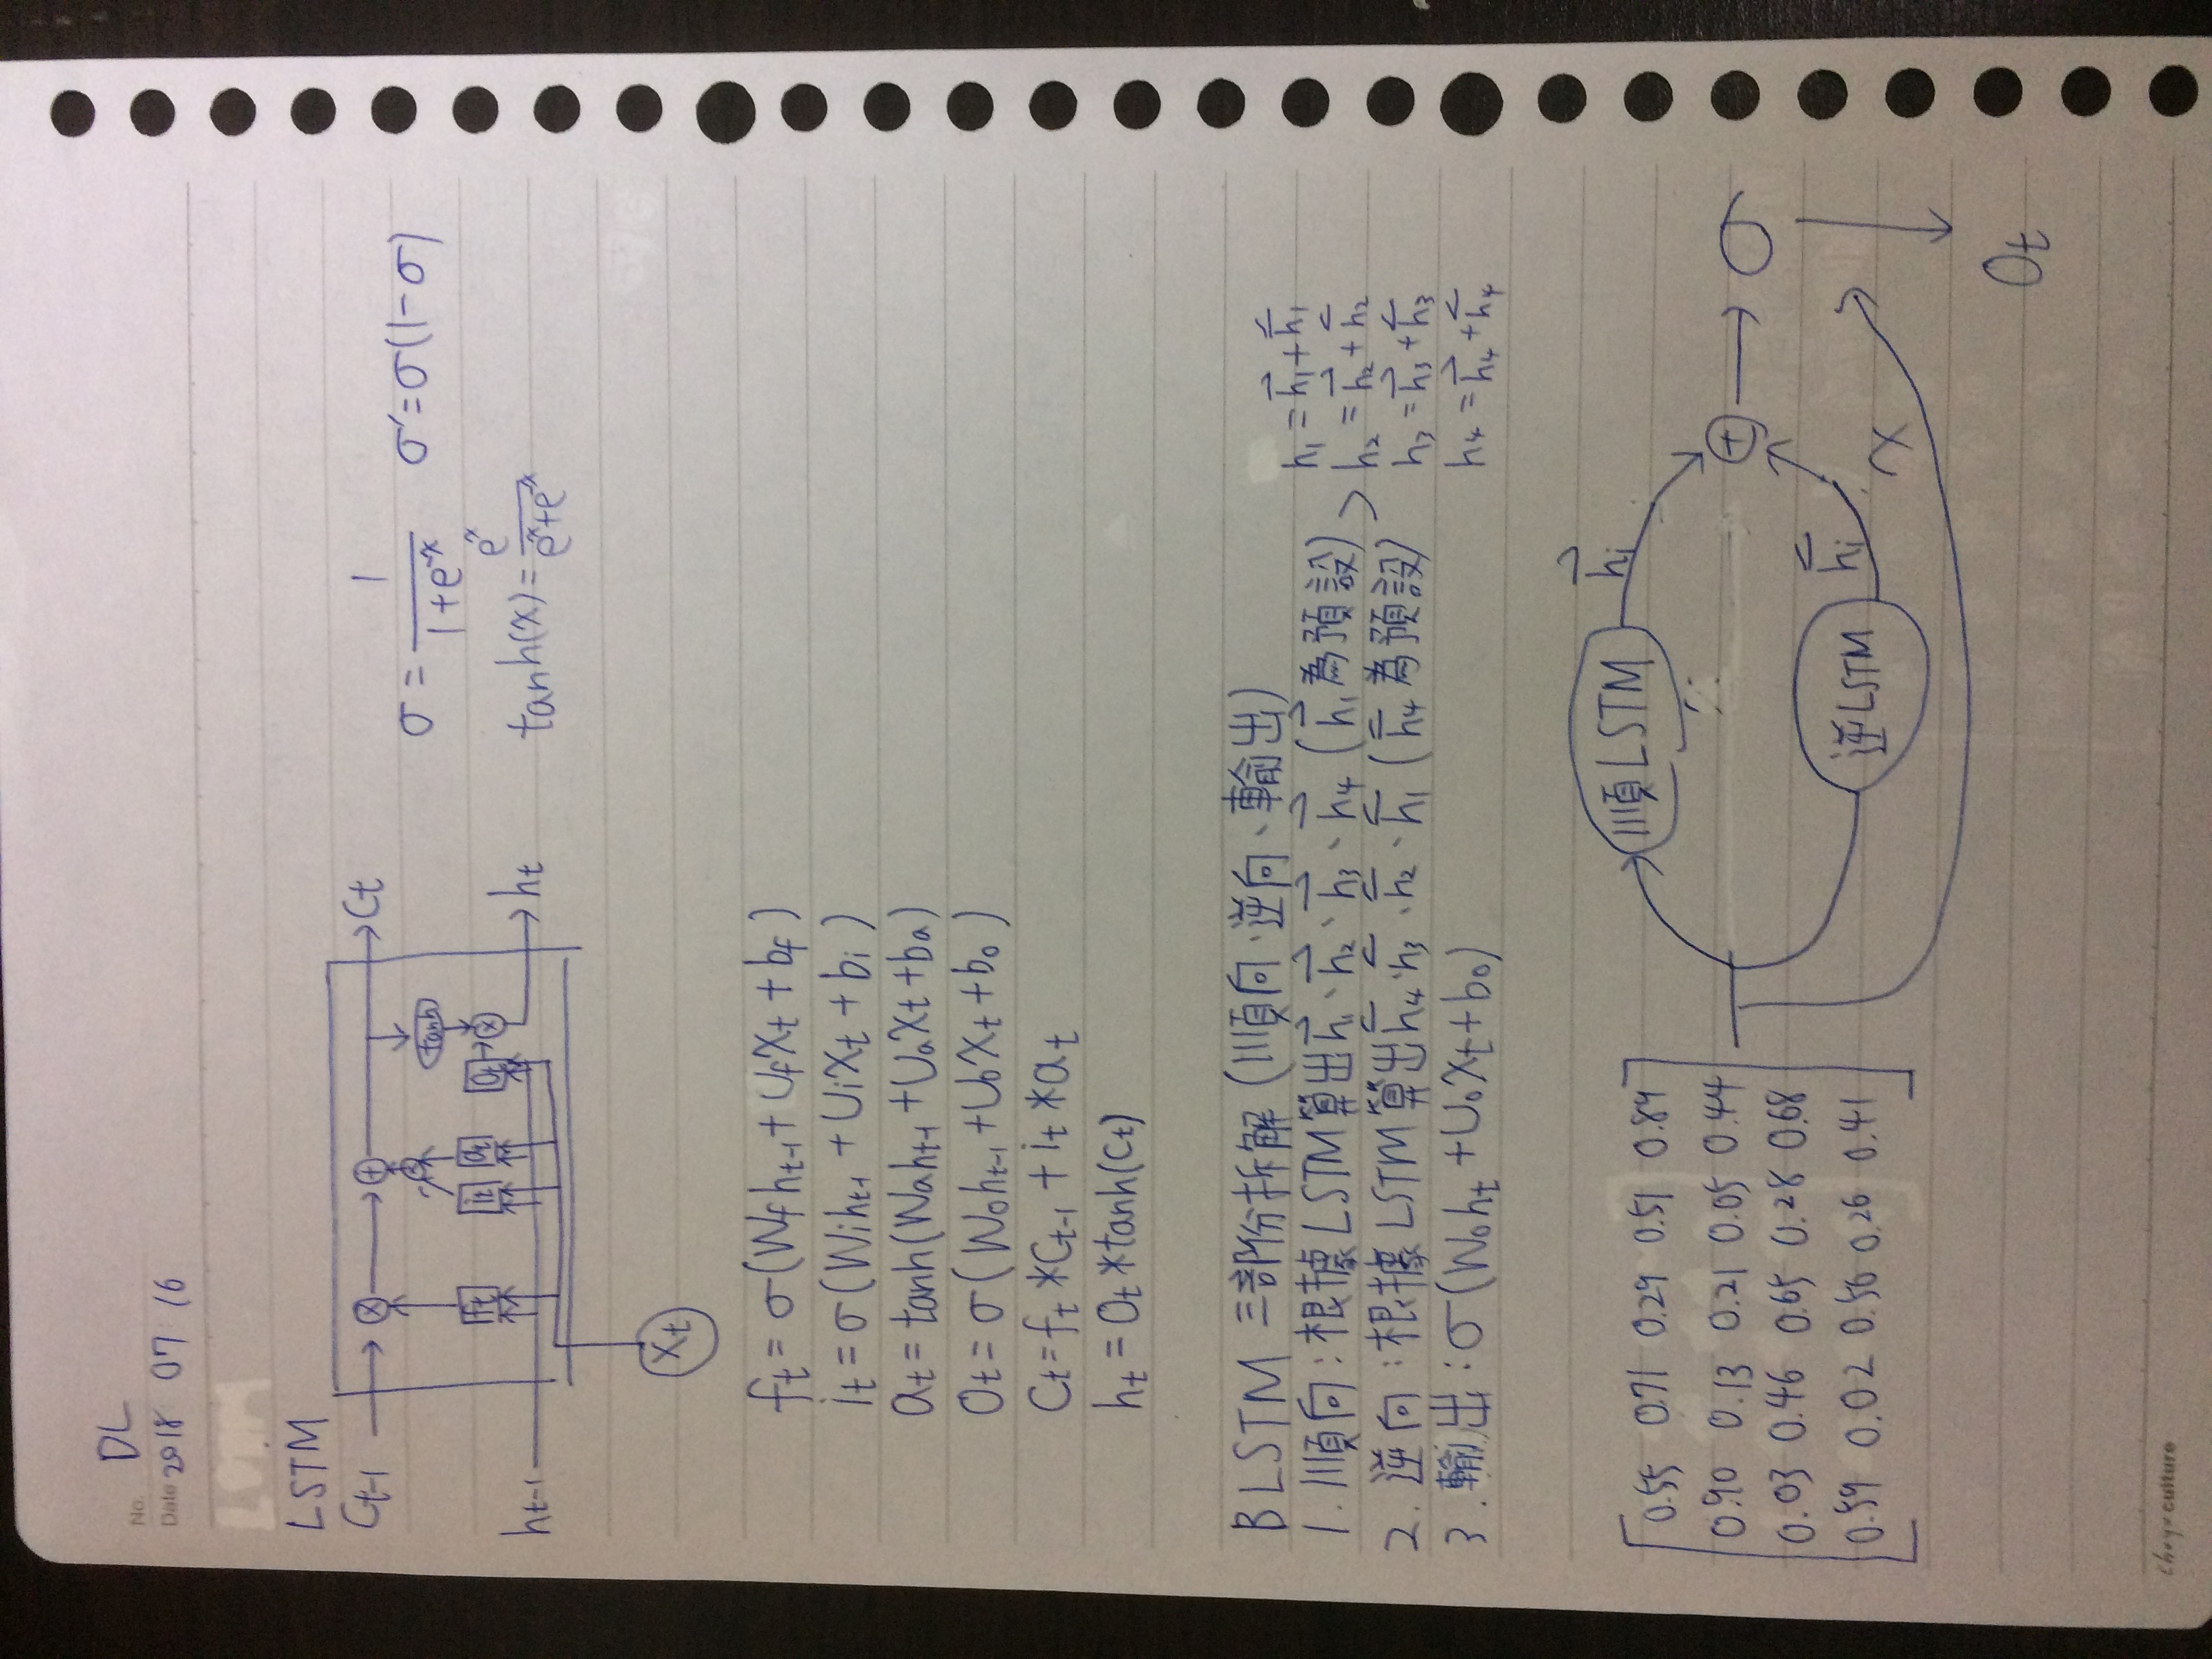 No. DL
Date 2018 07 16
LSTM
Ct-1 × + Ct
×
tanh
ft it at Ot ×
ht-1 ht
Xt
σ = 1 / (1+e^-x) σ' = σ(1-σ)
tanh(x) = e^x / (e^x+e^-x)
ft = σ(Wf ht-1 + Uf Xt + bf)
it = σ(Wi ht-1 + Ui Xt + bi)
at = tanh(Wa ht-1 + Ua Xt + ba)
Ot = σ(Wo ht-1 + Uo Xt + bo)
Ct = ft * Ct-1 + it * at
ht = Ot * tanh(Ct)
BLSTM 三部份拆解(順向、逆向、輸出)
1. 順向:根據LSTM算出h⃗1、h⃗2、h⃗3、h⃗4(h⃗1為預設)
2. 逆向:根據LSTM算出h⃖4、h⃖3、h⃖2、h⃖1(h⃖4為預設)
3. 輸出:σ(Wo ht + Uo Xt + bo)
h1 = h⃗1 + h⃖1
h2 = h⃗2 + h⃖2
h3 = h⃗3 + h⃖3
h4 = h⃗4 + h⃖4
0.55 0.71 0.29 0.51 0.89
0.90 0.13 0.21 0.05 0.44
0.03 0.46 0.65 0.28 0.68
0.59 0.02 0.56 0.26 0.41
順LSTM h⃗i
+ σ
逆LSTM h⃖i
x
Ot
culture